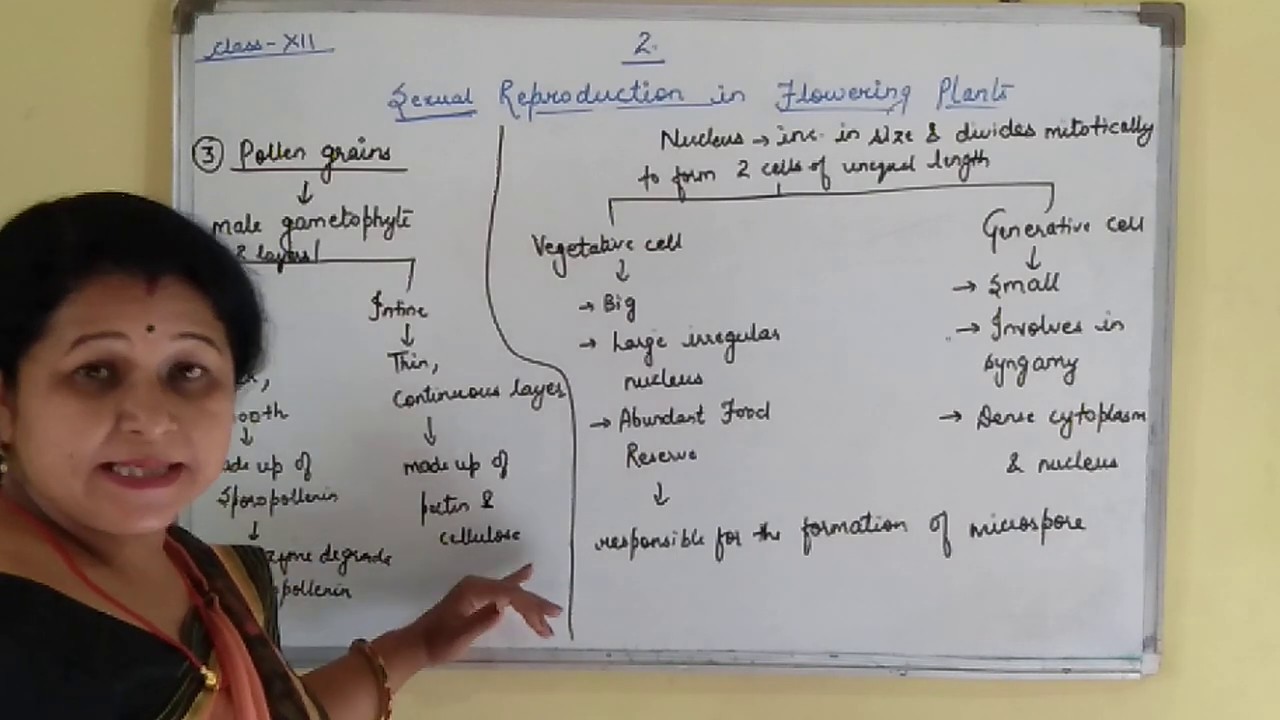 Class-XII
2.
Sexual Reproduction in Flowering Plants
③ Pollen grains
male gametophyte
2 layers
Intine
Thin,
continuous layer
made up of
pectin &
cellulose
made up of
Sporopollenin
degrade
Nucleus → inc. in size & divides mitotically
to form 2 cells of unequal length
Vegetative cell
→ Big
→ Large irregular
nucleus
→ Abundant Food
Reserve
responsible for the formation of microspore
Generative cell
→ Small
→ Involves in
syngamy
→ Dense cytoplasm
& nucleus